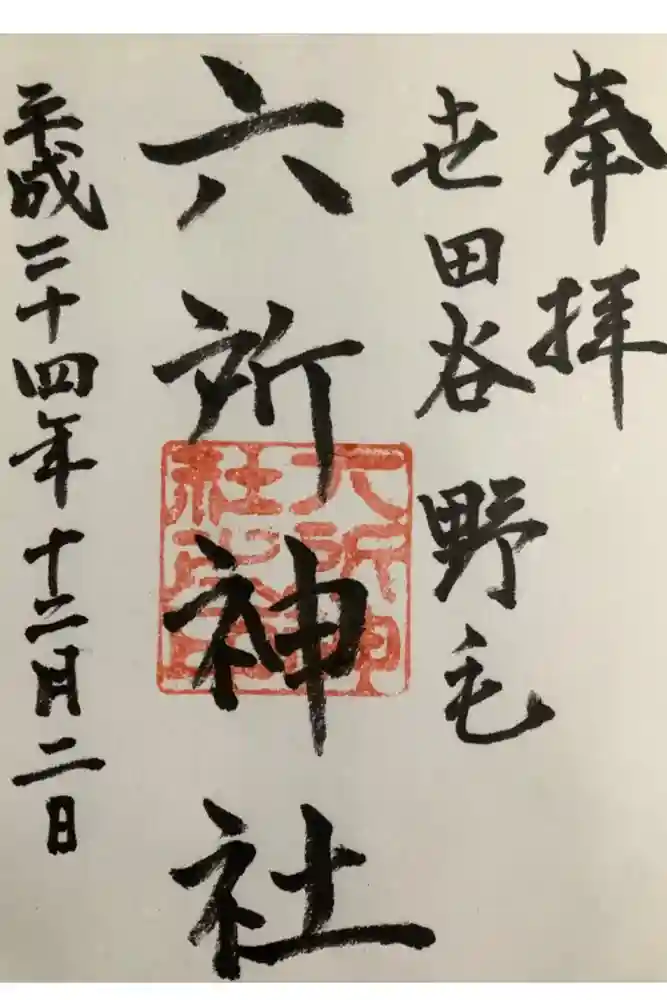 奉拝
世田谷 野毛
六所神社
六所神
社之印
平成二十四年十二月二日